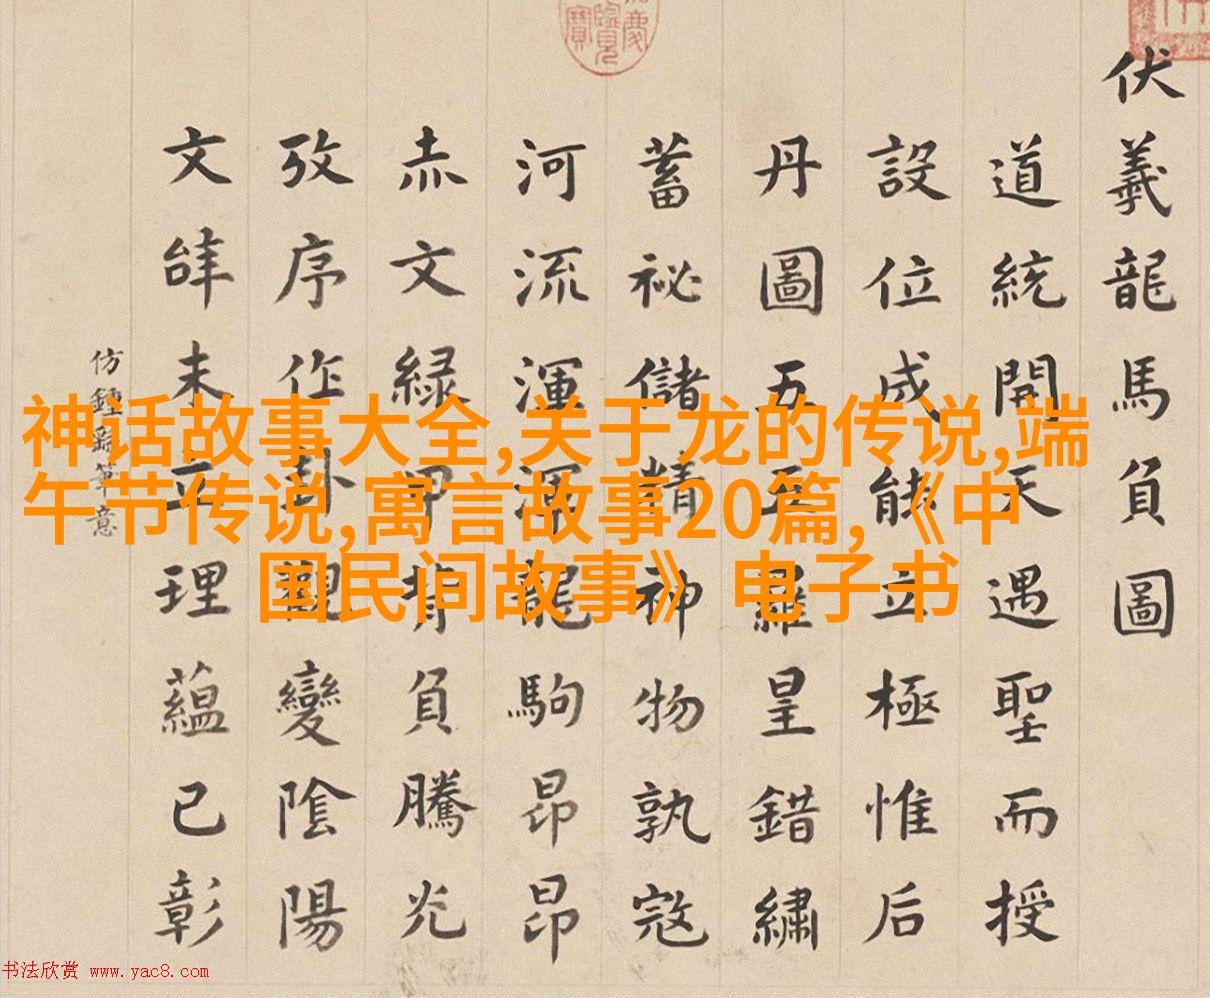 伏羲龍馬負圖
道統開天遇聖而授
設位成能立極惟后
丹圖五羅皇錯繡
蓄祕儲精神物孰寇
河流渾渾龍駒昂昂
赤文緑甲背負騰光
攷序作卦觀變陰陽
文辝未立理藴已彰
仿鍾繇筆意
慶覽寶
神话故事大全,关于龙的传说,端
午节传说,寓言故事20篇,《中
国民间故事》电子书
书法欣赏 www.yac8.com